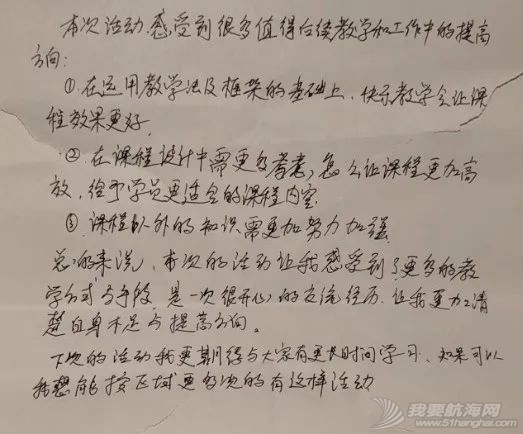 本次活动.感受到很多值得后续教学和工作中的提高
方向:
①.在运用教学法及框架的基础上.快乐教学会让课
程效果更好.
②在课程设计中需更多考虑,怎么让课程更加高
效,给予学员更适合的课程内容.
③课程以外的知识需更加努力加强.
总的来说,本次的活动让我感受到了更多的教
学方式与手段,是一次很开心的交流经历.让我更加清
楚自身不足与提高方向。
下次的活动我更期待与大家有更长时间学习、如果可以
我想能按区域更多次的有这样活动
我要航海网
www.51hanghai.com